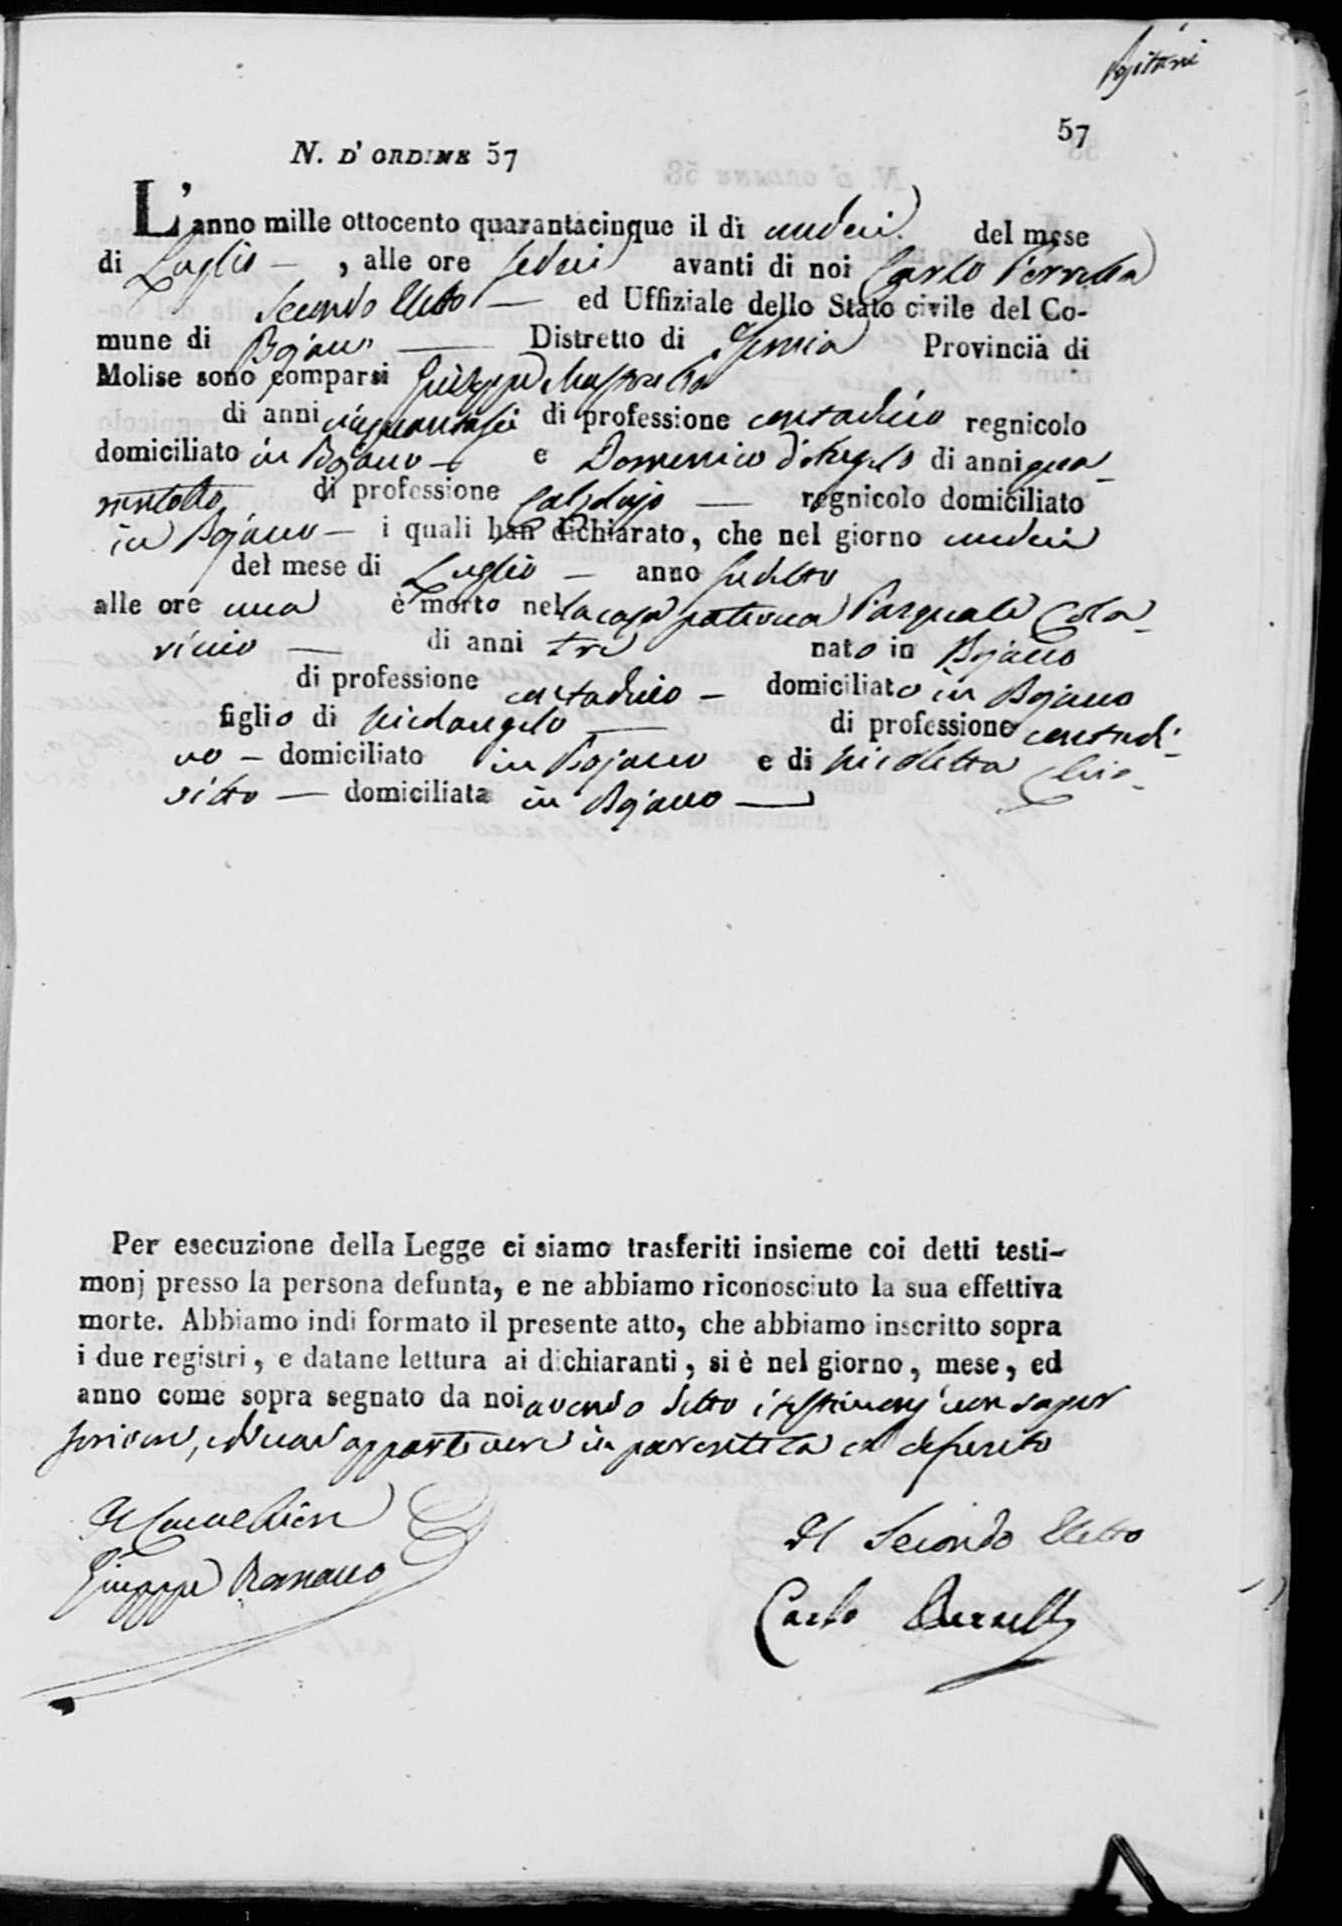 57
N. D' ORDINE 57
L'anno mille ottocento quarantacinque il dì undeci del mese
di Luglio — , alle ore sedeci avanti di noi Carlo Perrella
Secondo Eletto — ed Uffiziale dello Stato civile del Co-
mune di Bojano — Distretto di Isernia Provincia di
Molise sono comparsi Giuseppe
di anni cinquantasei di professione contadino regnicolo
domiciliato in Bojano — e Domenico d'Angelo di anni qua-
rantotto di professione Calzolajo — regnicolo domiciliato
in Bojano — i quali han dichiarato, che nel giorno undeci
del mese di Luglio — anno sudetto
alle ore una è morto nella casa paterna Pasquale Cola-
rusio — di anni tre nato in Bojano
di professione contadino — domiciliato in Bojano
figlio di Nicolangelo — di professione contadi-
no — domiciliato in Bojano e di Nicoletta Chio-
vitto — domiciliata in Bojano —
Per esecuzione della Legge ci siamo trasferiti insieme coi detti testi-
monj presso la persona defunta, e ne abbiamo riconosciuto la sua effettiva
morte. Abbiamo indi formato il presente atto, che abbiamo inscritto sopra
i due registri, e datane lettura ai dichiaranti, si è nel giorno, mese, ed
anno come sopra segnato da noi avendo detto i testimonj non saper
scrivere, e di non appartenere in parentela al defunto
Il Cancelliere
Giuseppe Romano
Il Secondo Eletto
Carlo Perrella